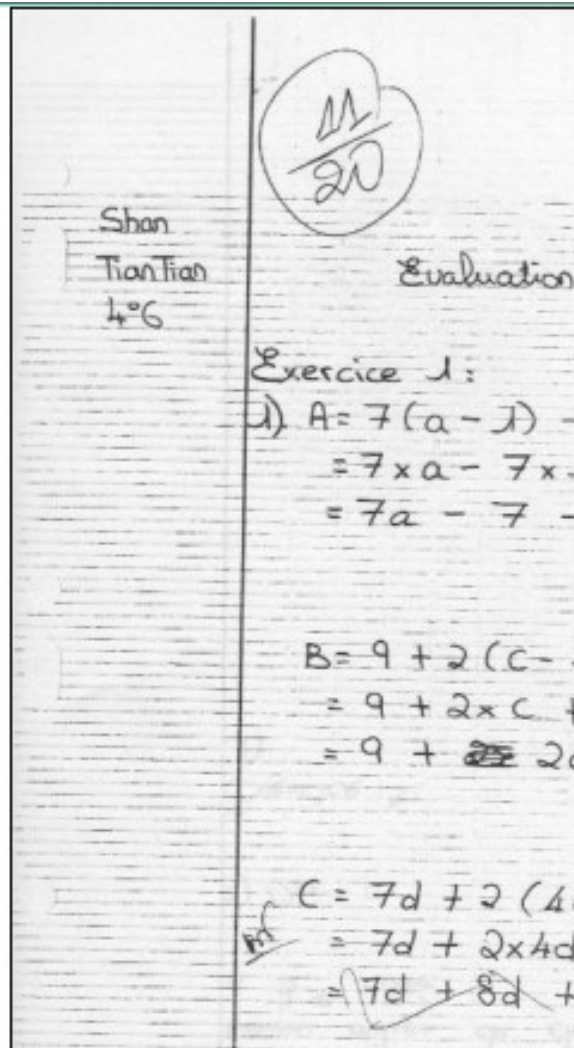 11
20
Shan
TianTian
4°6
Evaluation
Exercice 1:
1) A= 7(a - 1) -
= 7 x a - 7 x
= 7a - 7 -
B= 9 + 2 (c -
= 9 + 2x c +
= 9 + 2
C = 7d + 2 (4
= 7d + 2x4d
= 7d + 8d +